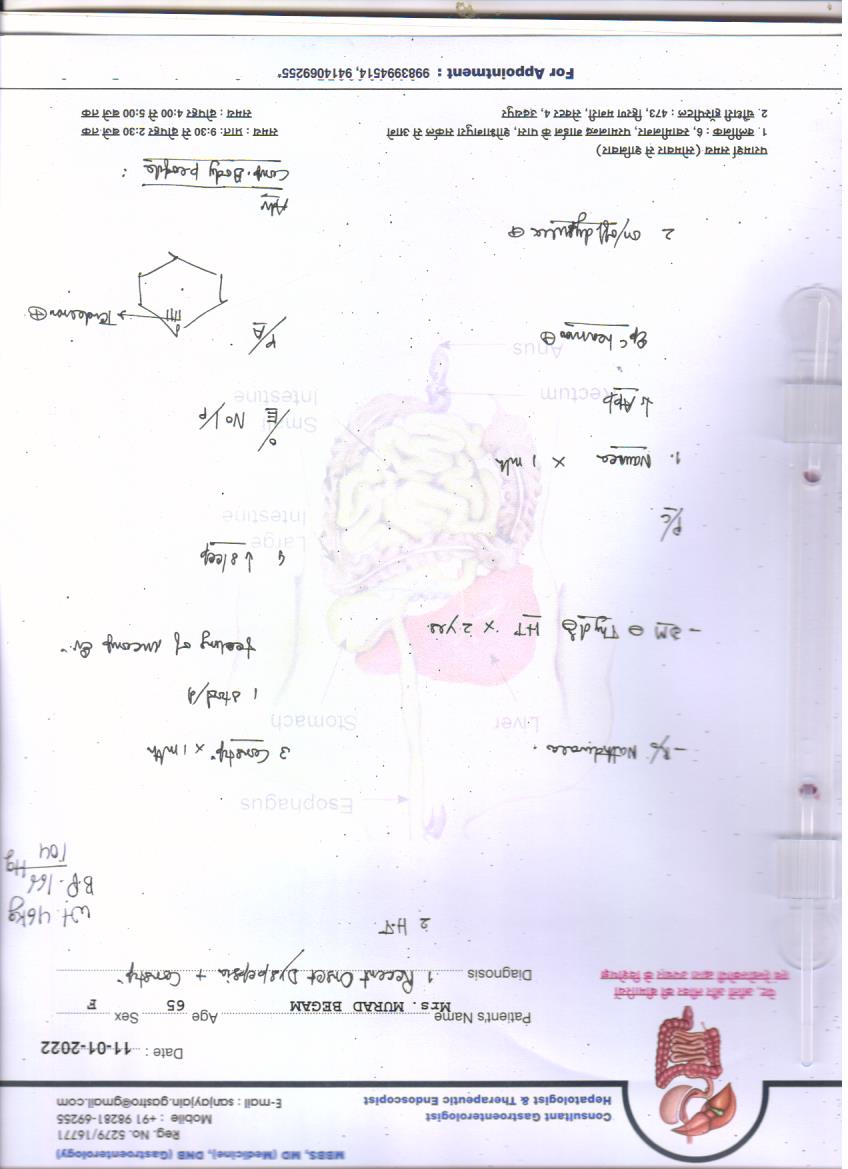 MBBS, MD (Medicine), DNB (Gastroenterology)
Consultant Gastroenterologist
Hepatologist & Therapeutic Endoscopist
Reg. No. 5279/16771
Mobile : +91 98281-69255
E-mail : sanjayjain.gastro@gmail.com
पेट, आँतों और लीवर की बीमारियों
एवं एंडोस्कोपी द्वारा उपचार के विशेषज्ञ
Date : 11-01-2022
Patient's Name Mrs. MURAD BEGAM Age 65 Sex F
Diagnosis 1 Recent Onset Dyspepsia + Constpn
2 HT
Wt. 46kg
B.P. 166
104 Hg
- R/o Nathdwara.
- DM ⊖ Thyd ⊖ HT x 2 yrs
P/C
1. Nausea x 1 mth
↓ App
Ep
2 on/off dyspnea ⊕
3 Constpn x 1 mth
1 stool/d
feeling of incomp Ev.n
4 ↓ sleep
O/E No/P
P/A
Tenderness ⊕
Adv
Esophagus
Liver
Stomach
Large
Intestine
Small
Intestine
Rectum
Anus
परामर्श समय (सोमवार से शनिवार)
1. क्लीनिक : 6, स्वामीनगर, परमानन्द गार्डन के पास, शोभागपुरा सर्कल से आगे
समय : प्रातः 9:30 से दोपहर 2:30 बजे तक
2. चौधरी हॉस्पीटल : 473, हिरण मगरी, सेक्टर 4, उदयपुर
समय : दोपहर 4:00 से 5:00 बजे तक
For Appointment : 9983994514, 9414069255*